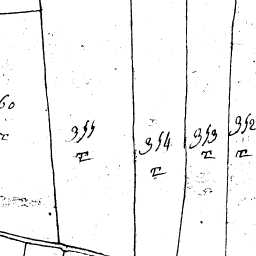 60
T
355
T
354
T
353
T
352
T